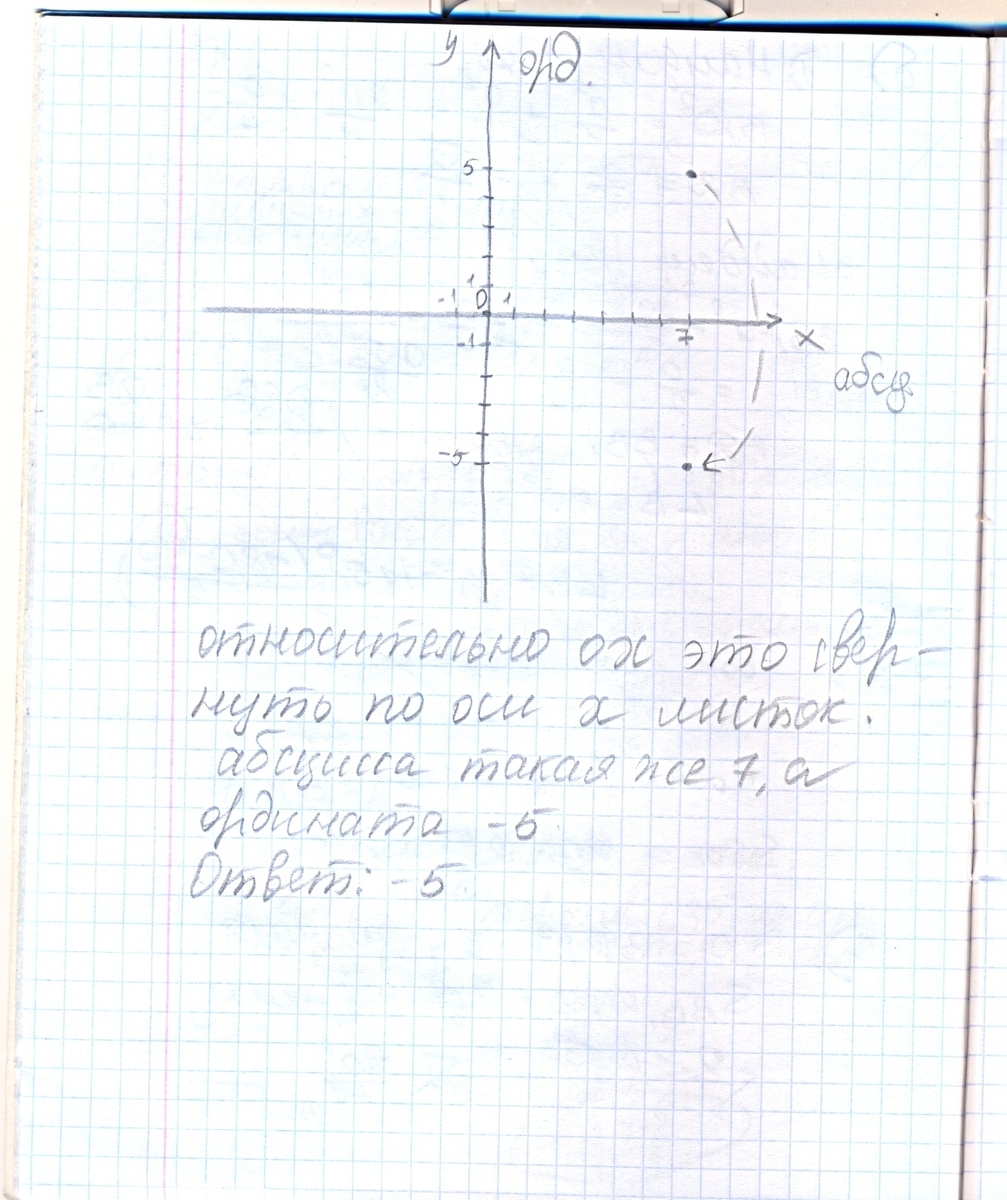 y орд.
5
1
-1 0 1
-1 7 x
абсц.
-5
относительно ох это свер-
нуть по оси х листок.
абсцисса такая же 7, а
ордината -5
Ответ: -5